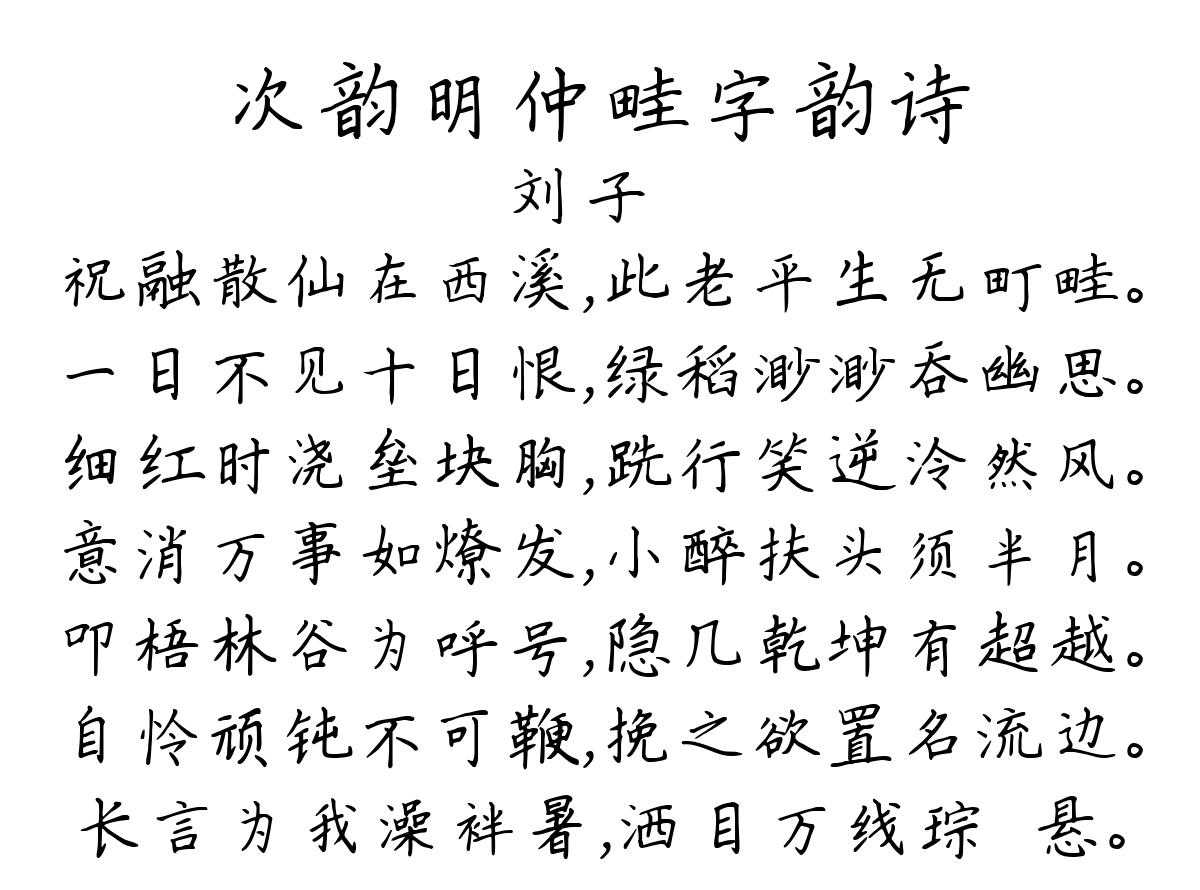 次韵明仲畦字韵诗
刘子
祝融散仙在西溪,此老平生无町畦。
一日不见十日恨,绿稻渺渺吞幽思。
细红时浇垒块胸,跣行笑逆泠然风。
意消万事如燎发,小醉扶头须半月。
叩梧林谷为呼号,隐几乾坤有超越。
自怜顽钝不可鞭,挽之欲置名流边。
长言为我澡袢暑,洒目万线琮 悬。